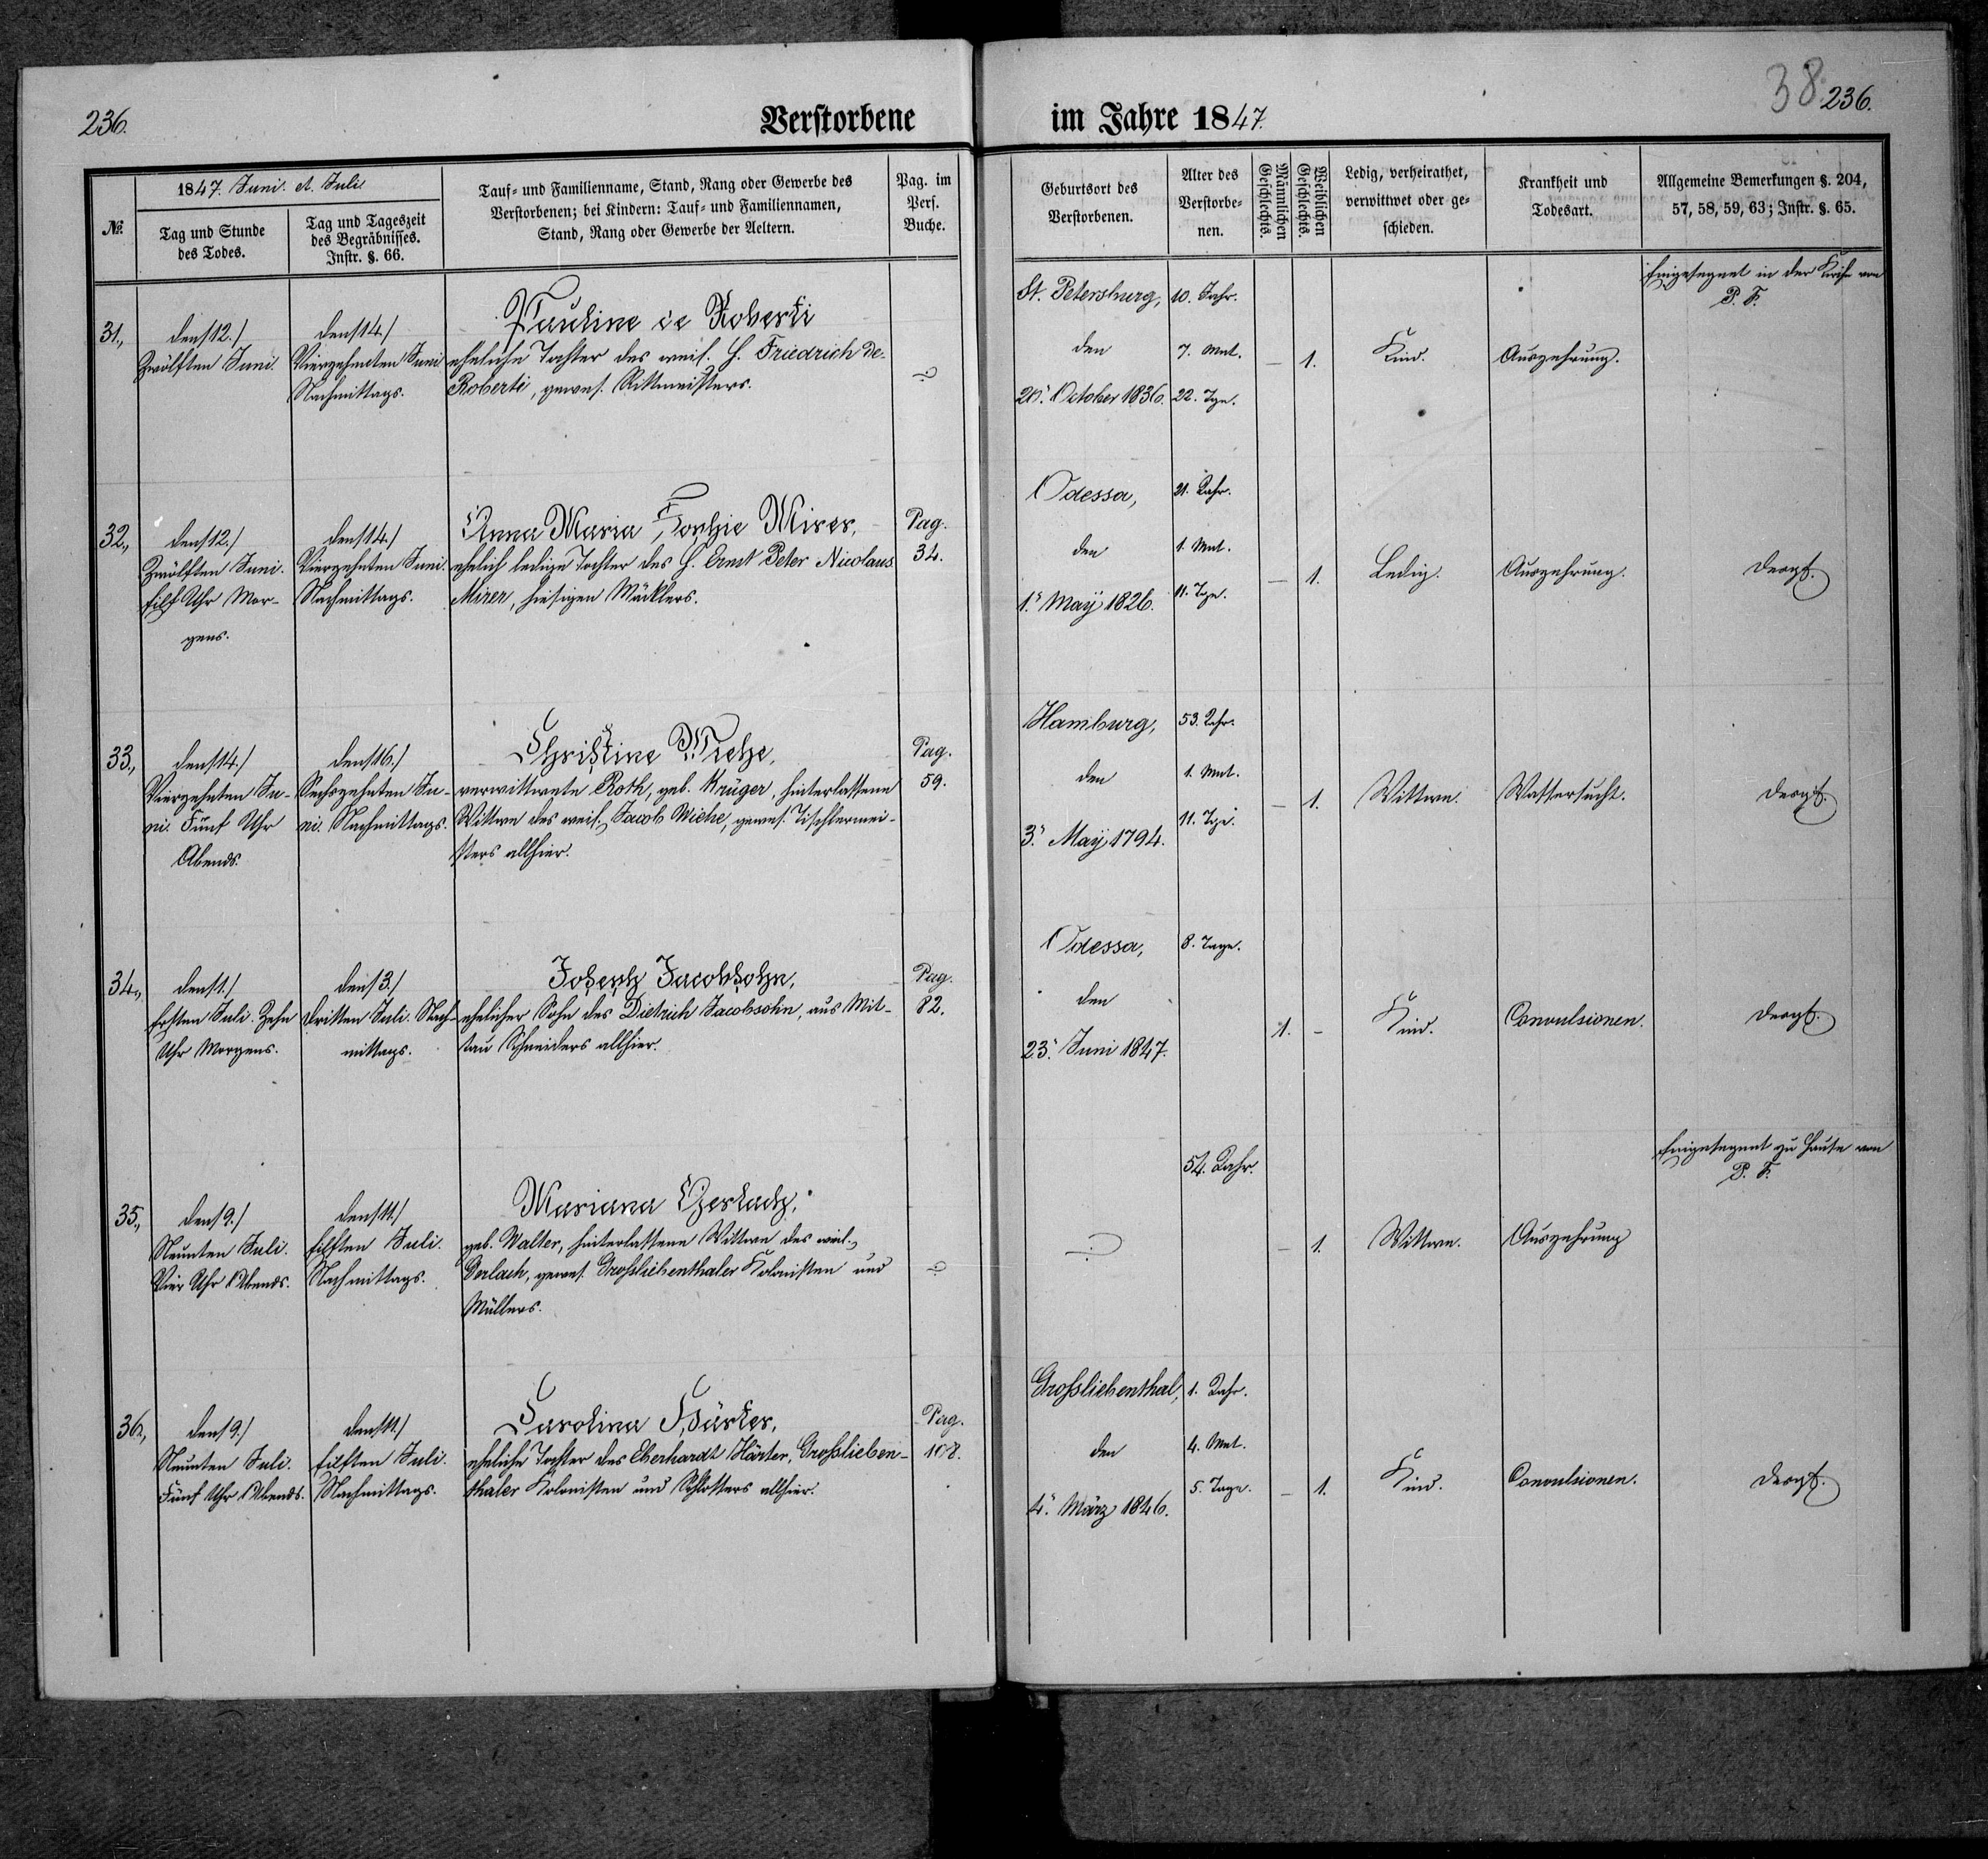 236.
Verstorbene im Jahre 1847.
38
236.
№
1847. Juni. et. Juli
Tag und Stunde
des Todes.
Tag und Tageszeit
des Begräbnisses.
Instr. §. 66.
Tauf- und Familienname, Stand, Rang oder Gewerbe des
Verstorbenen; bei Kindern: Tauf- und Familiennamen,
Stand, Rang oder Gewerbe der Aeltern.
Pag. im
Pers.
Buche.
Geburtsort des
Verstorbenen.
Alter des
Verstorbe-
nen.
Männlichen
Geschlechts.
Weiblichen
Geschlechts.
Ledig, verheirathet,
verwittwet oder ge-
schieden.
Krankheit und
Todesart.
Allgemeine Bemerkungen §. 204,
57, 58, 59, 63; Instr. §. 65.
31.,
den 12./
Zwölften Juni.
den 14./
Vierzehnten Juni
Nachmittags.
Pauline de Roberti
eheliche Tochter des weil. H. Friedrich de-
Roberti, gewes. Rittmeisters.
?
St. Petersburg,
den
20. October 1836.
10. Jahr.
7. Mnt.
22. Tge.
–
1.
Kind.
Auszehrung.
Eingesegnet in der Kirche von
P. F.
32.,
den 12./
Zwölften Juni.
Eilf Uhr Mor-
gens.
den 14./
Vierzehnten Juni.
Nachmittags.
Anna Maria Sophie Mirer,
ehelich ledige Tochter des H. Ernst Peter Nicolaus
Mirer, hiesigen Mäklers.
Pag.
34.
Odessa,
den
1. Maÿ 1826.
21. Jahr.
1. Mnt.
11. Tge.
–
1.
Ledig.
Auszehrung.
Desgl.
33.,
den 14./
Vierzehnten Ju-
ni. Fünf Uhr
Abends.
den 16./
Sechszehnten Ju-
ni. Nachmittags.
Christine Wiehe,
verwittwete Roth, geb. Krüger, hinterlassene
Wittwe des weil. Jacob Wiehe, gewes. Tischlermei-
sters allhier.
Pag.
59.
Hamburg,
den
3. Maÿ 1794.
53. Jahr.
1. Mnt.
11. Tge.
–
1.
Wittwe.
Wassersucht.
Desgl.
34.,
den 1./
Ersten Juli. Zehn
Uhr Morgens.
den 3./
Dritten Juli. Nach-
mittags.
Joseph Jacobsohn,
ehelicher Sohn des Dietrich Jacobsohn, aus Mit-
tau Schneiders allhier.
Pag.
82.
Odessa,
den
23. Juni 1847.
8. Tage.
1.
–
Kind.
Convulsionen.
Desgl.
35.,
den 9./
Neunten Juli.
Vier Uhr Abends.
den 11./
Eilften Juli.
Nachmittags.
Mariana Gerlach,
geb. Walter, hinterlassene Wittwe des weil.
Gerlach, gewes. Großliebenthaler Kolonisten und
Müllers.
?
?
54. Jahr.
–
1.
Wittwe.
Auszehrung
Eingesegnet zu Hause von
P. F.
36.,
den 9./
Neunten Juli.
Fünf Uhr Abends.
den 11./
Eilften Juli.
Nachmittags.
Carolina Härter,
eheliche Tochter des Eberhardt Härter, Großlieben-
thaler Kolonisten und Schlossers allhier.
Pag.
108.
Großliebenthal,
den
4. März 1846.
1. Jahr.
4. Mnt.
5. Tage.
–
1.
Kind.
Convulsionen.
Desgl.